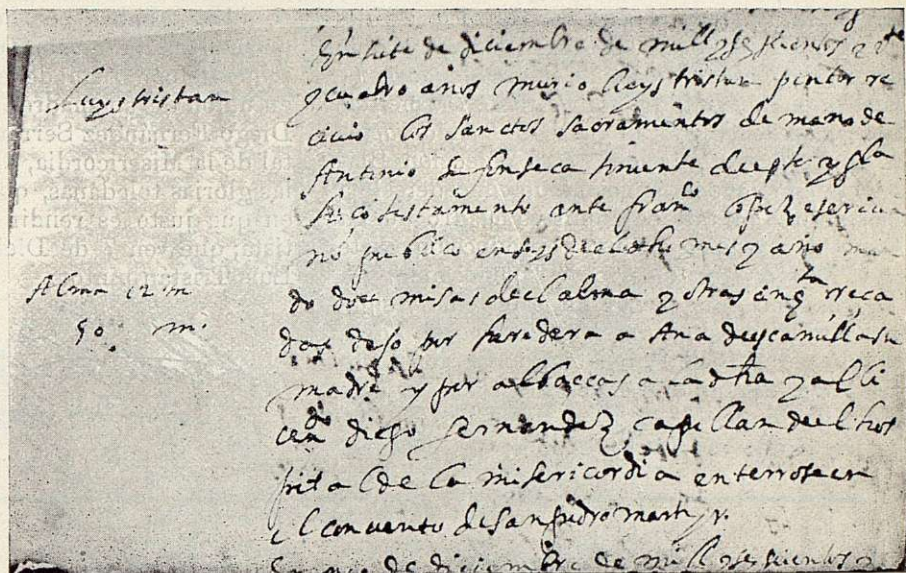 En siete de diciembre de mill y seyscientos y
Luys tristan
y cuatro años murio luys tristan pintor re
civio los sanctos sacramentos de mano de
Antonio de fonseca tiniente
hiço testamento ante fran.co lopez escriva
no publico en seys del dicho mes y año man
Alma 12 m
do doce misas del alma y otras cinq.ta reça
50 m.
das dejo por heredera a Ana de escamilla su
madre y por albaceas a la d̄ha y al li
cen.do diego fernandez capellan del hos
pital de la misericordia enterrose en
el convento de san pedro martyr.
de diciembre de mill y seyscientos y